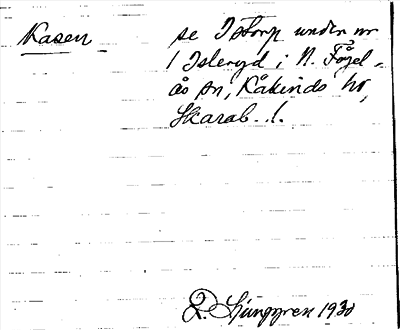 Kasen
se Istorp under nr
1 Isleryd i N. Fågel-
ås sn, Kåkinds hd,
Skarab. l.
2. Ljunggren 1930